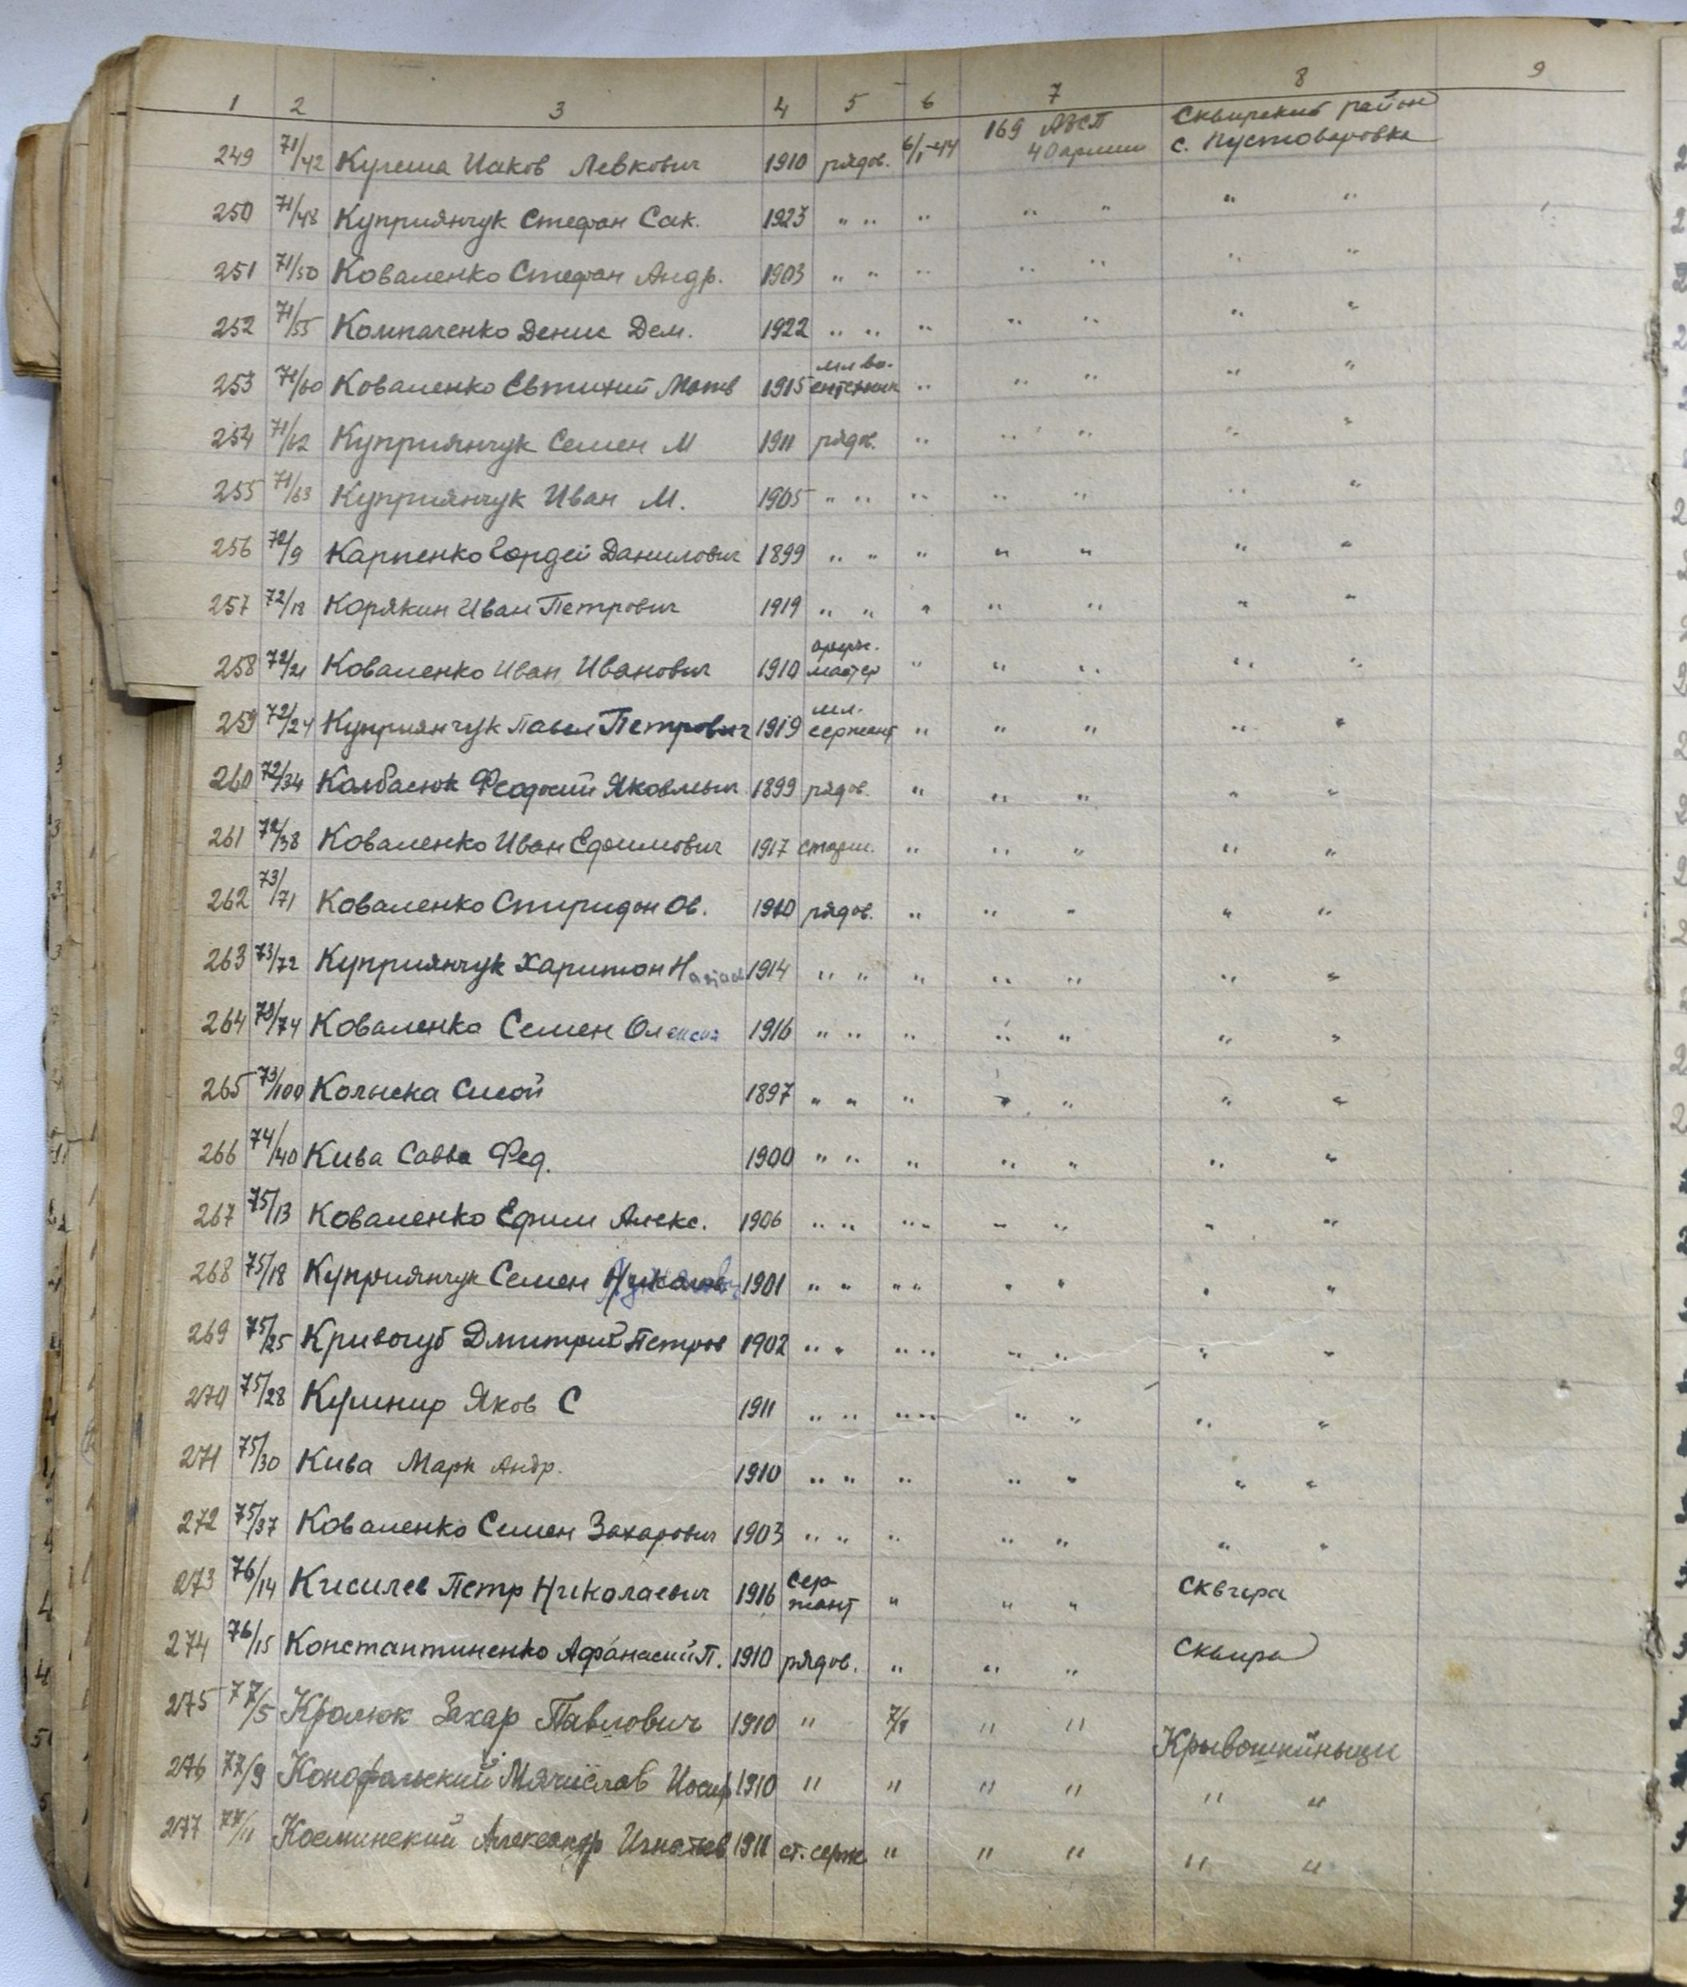 1 2 3 4 5 6 7 8 9
249 71/42 Кулеша Иаков Левкович 1910 рядов. 6/I-44 169 АЗСП 40 армии Сквирский район с. Пустоваровка
250 71/48 Куприянчук Стефан Сак. 1923 " " " " " " "
251 71/50 Коваленко Стефан Андр. 1903 " " " " " " "
252 71/55 Компаченко Денис Дем. 1922 " " " " " " "
253 71/60 Коваленко Евтихий Матв 1915 " " " " "
254 71/62 Куприянчук Семен М 1911 рядов. " " " " "
255 71/63 Куприянчук Иван М. 1905 " " " " " " "
256 72/9 Карпенко Гордей Данилович 1899 " " " " " " "
257 72/18 Корякин Иван Петрович 1919 " " " " " " "
258 72/21 Коваленко Иван Иванович 1910 мастер " " " " "
259 72/24 Куприянчук Павел Петрович 1919 мл. сержант " " " " "
260 72/34 Колбасюк Феодосий Яковлевич 1899 рядов. " " " " "
261 72/38 Коваленко Иван Ефимович 1917 старш. " " " " "
262 73/71 Коваленко Спиридон Ов. 1910 рядов. " " " " "
263 73/72 Куприянчук Харитон 1914 " " " " " " "
264 73/74 Коваленко Семен Олексія 1916 " " " " " " "
265 73/100 Колыска Сисой 1897 " " " " " " "
266 74/40 Кива Савва Фед. 1900 " " " " " " "
267 75/13 Коваленко Ефим Алекс. 1906 " " " " " " "
268 75/18 Куприянчук Семен 1901 " " " " " " "
269 75/25 Кривогуб Дмитрий Петров 1902 " " " " " " "
270 75/28 Кушнир Яков С 1911 " " " " " " "
271 75/30 Кива Марк Андр. 1910 " " " " " " "
272 75/37 Коваленко Семен Захарович 1903 " " " " " " "
273 76/14 Кисилев Петр Николаевич 1916 сержант " " " Сквира
274 76/15 Константиненко Афанасий П. 1910 рядов. " " " Сквира
275 77/5 Кролюк Захар Павлович 1910 " 7/I " " Крывошийныци
276 77/9 Конофальский Мячислав Иосиф 1910 " " " " " "
277 77/11 Косминский Александр Игнатьев 1911 ст. серж. " " " " "